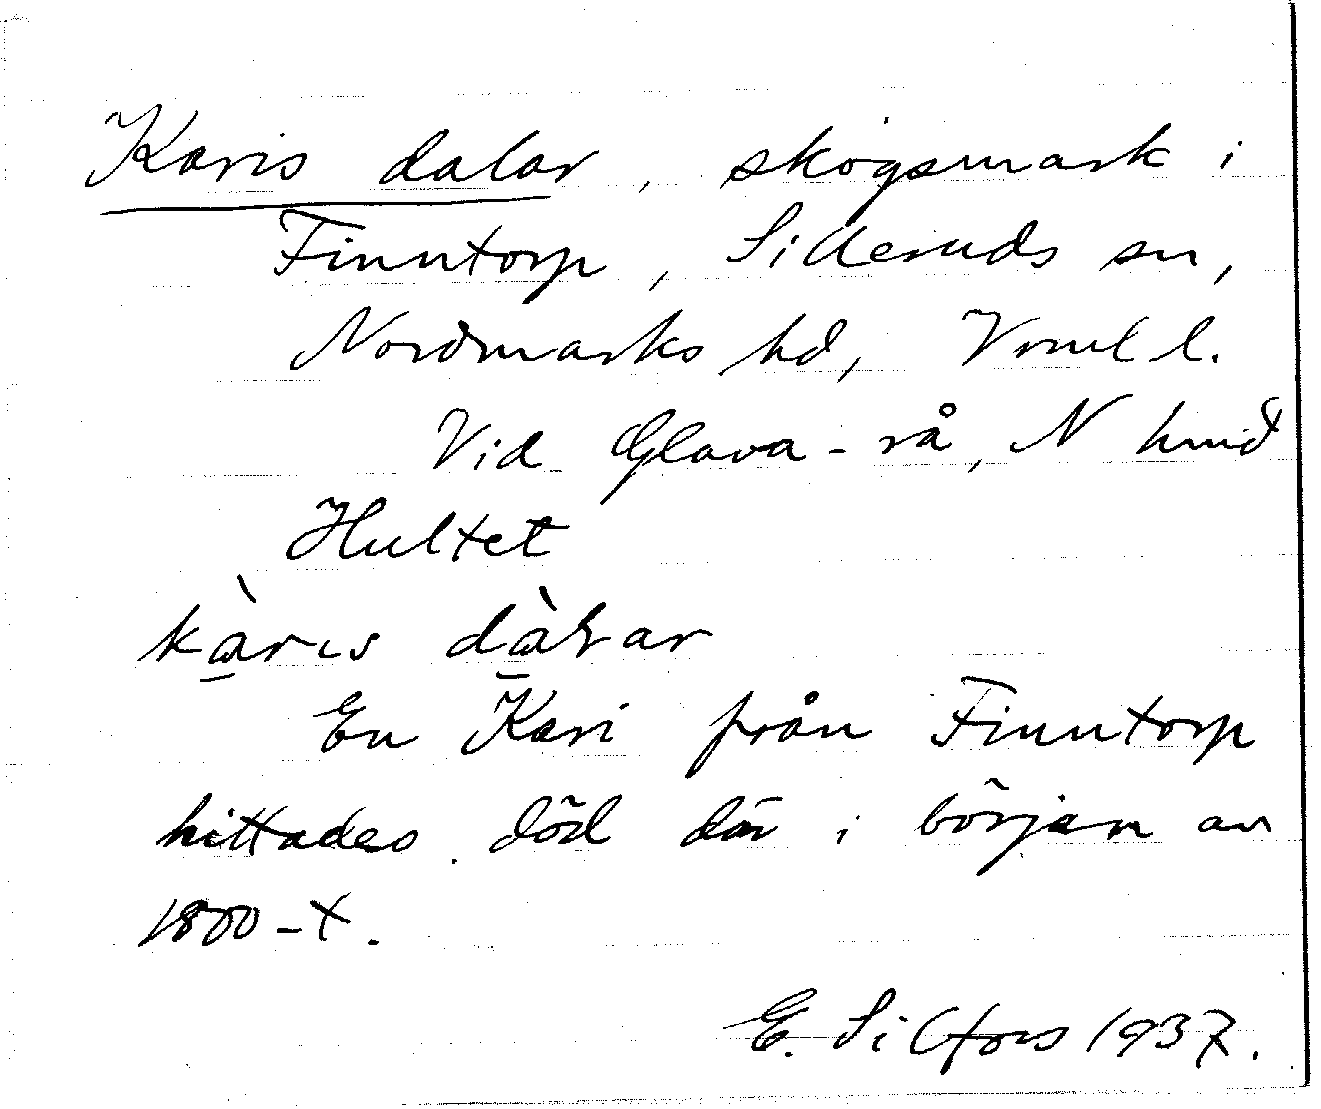 Karis dalar, skogsmark i
Finntorp, Silleruds sn,
Nordmarks hd, Vrml l.
Vid Glava-rå, N
Hultet
kàrıs dàLar
En Kari från Finntorp
hittades död där i början av
1800-t.
E. Silfors 1937.